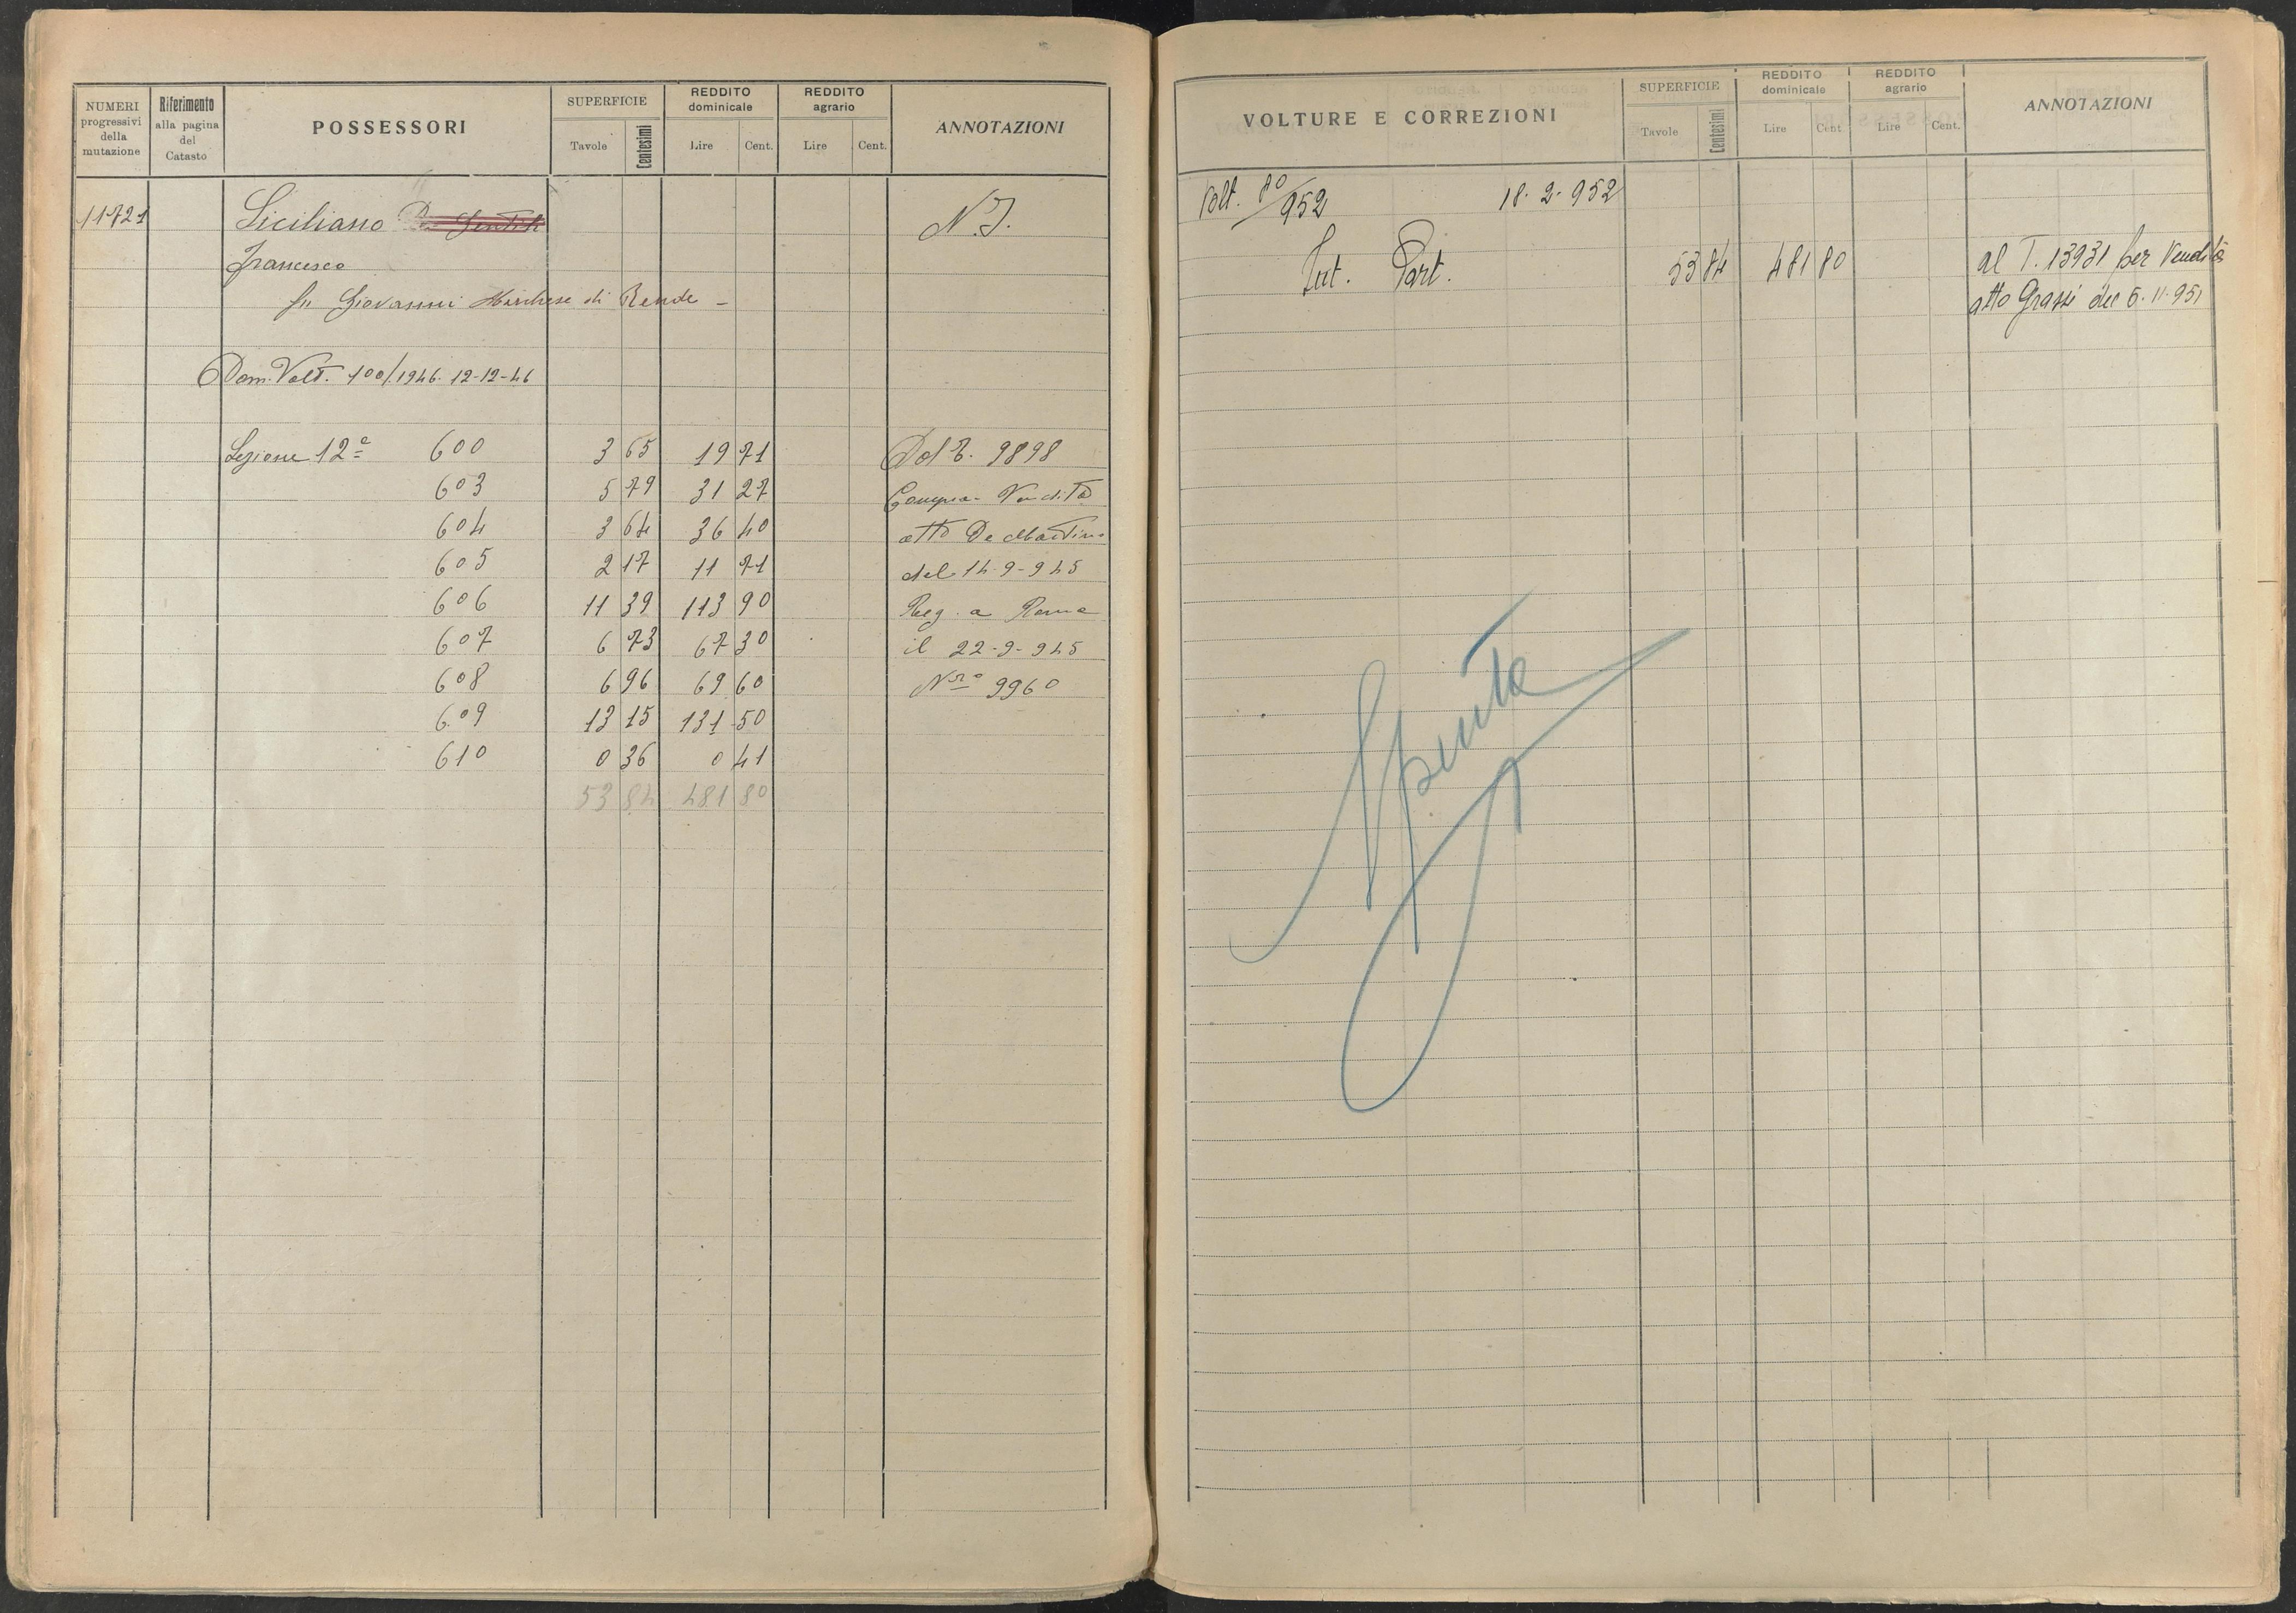 NUMERI progressivi della mutazione
Riferimento alla pagina del Catasto
POSSESSORI
SUPERFICIE
Tavole Centesimi
REDDITO dominicale
Lire Cent.
REDDITO agrario
Lire Cent.
ANNOTAZIONI
11721 Siciliano N.I.
Francesco
fu Giovanni Marchese di Rende -
Dom. Volt. 100/1946. 12-12-46
Sezione 12ª 600 3 65 19 71 Dal T. 9898
603 5 79 31 27 Compra-Vendita
604 3 64 36 40 atto De Martino
605 2 17 11 71 del 14-9-945
606 11 39 113 90 Reg. a Roma
607 6 73 67 30 il 22-9-945
608 6 96 69 60 Nro 9960
609 13 15 131 50
610 0 36 0 41
53 84 481 80
VOLTURE E CORREZIONI
SUPERFICIE
Tavole Centesimi
REDDITO dominicale
Lire Cent.
REDDITO agrario
Lire Cent.
ANNOTAZIONI
Volt. 80/952 18-2-952
Int. Part. 53 84 481 80 al T. 13931 per Vendita
atto Grassi del 5-11-951
Spenta